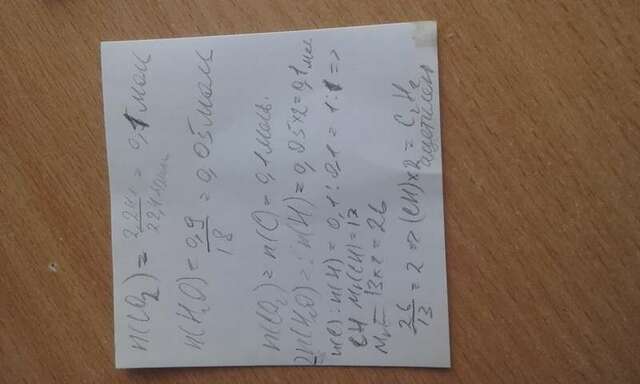 n(CO₂) = 2,24л / 22,4л/моль = 0,1 моль
n(H₂O) = 0,9 / 18 = 0,05 моль
n(CO₂) = n(C) = 0,1 моль.
2n(H₂O) = n(H) = 0,05×2 = 0,1 мол
n(C) : n(H) = 0,1 : 0,1 = 1 : 1 =>
CH Mr(CH) = 13
Mr = 13×2 = 26
26 / 13 = 2 => (CH)×2 = C₂H₂
ацетилен